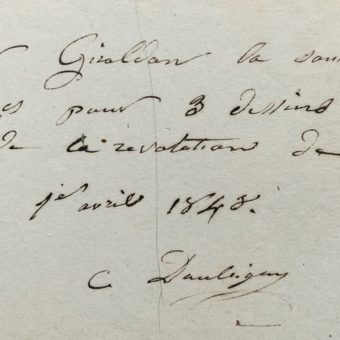 Giraldon la som
es pour 3 dessins
de la révolution de
1er avril 1848.
C. Daubigny